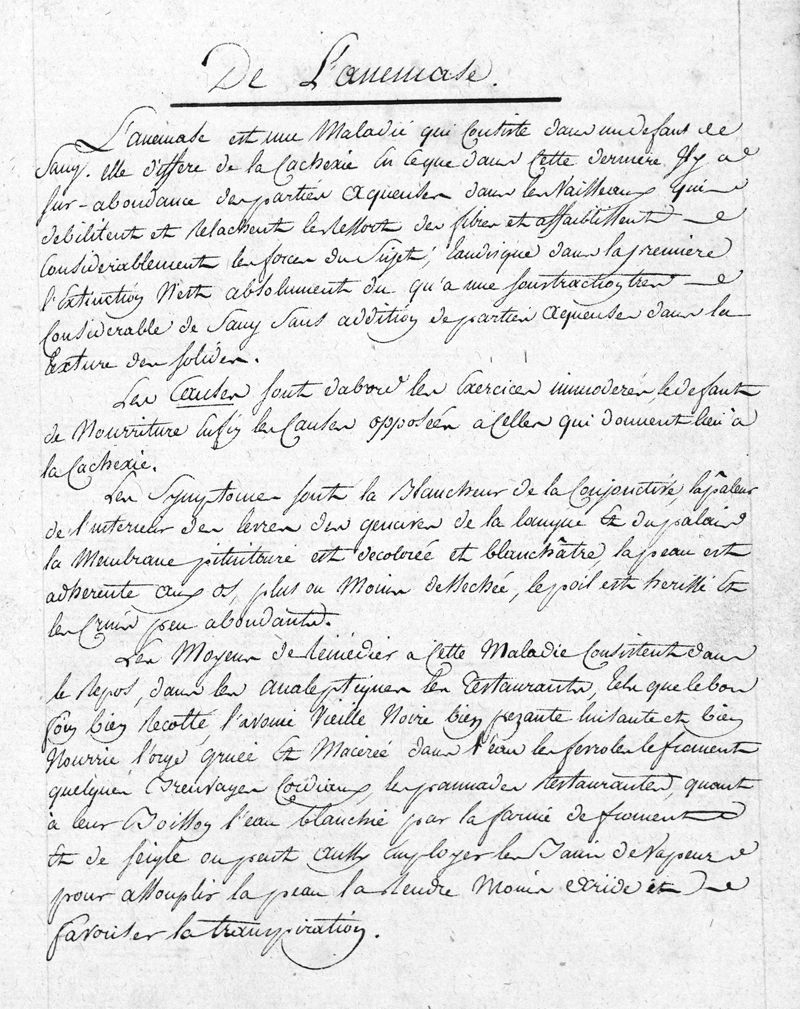 De L'anemase.
L'anemase est une Maladie qui Consiste dans un defaut de
Sang. elle differe de la Cachexie En ceque dans Cette derniere Il y a
sur-abondance des parties aqueuses dans les Vaisseaux qui
debilitent et relachent le Ressort des fibres et affaiblissent
Considerablement les forces du Sujet; tandisque dans la premiere
l'Extinction N'est absolument du qu'a une soustraction tres
Considerable de Sang Sans addition de parties aqueuses dans la
texture des solides.
Les Causes sont dabord les Exercices immoderés, le defaut
de Nourriture Enfin les Causes opposées a Celles qui donnent lieu a
la Cachexie.
Les Symptomes sont la Blancheur de la Conjonctive, la pâleur
de l'interieur des levres des gencives de la langue Et du palais
la Membrane pituitaire est decolorée et blanchâtre, la peau est
adherente aux os, plus ou Moins dessechée, le poil est herissé Et
les Crins peu abondants.
Les Moyens de Remédier a Cette Maladie Consistent dans
le Repos, dans les analeptiques les restaurants, tels que le bon
foin bien Recolté, l'avoine Vieille Noire bien pezante luisante et bien
Nourrie l'orge gruée Et Macérée dans l'eau les ferroles le froment
quelques Breuvages Cordiaux, les pannades Restaurantes, quant
à leur Boisson l'eau blanchie par la farine de froment
Et de seigle on peut aussi Employer les Bains de Vapeurs
pour assouplir la peau la Rendre Moins aride et
favoriser la transpiration.